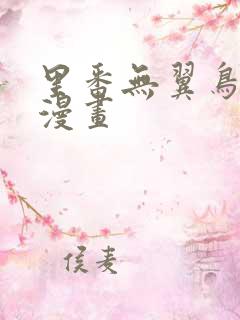 里番無翼鳥
漫畫
侯麦